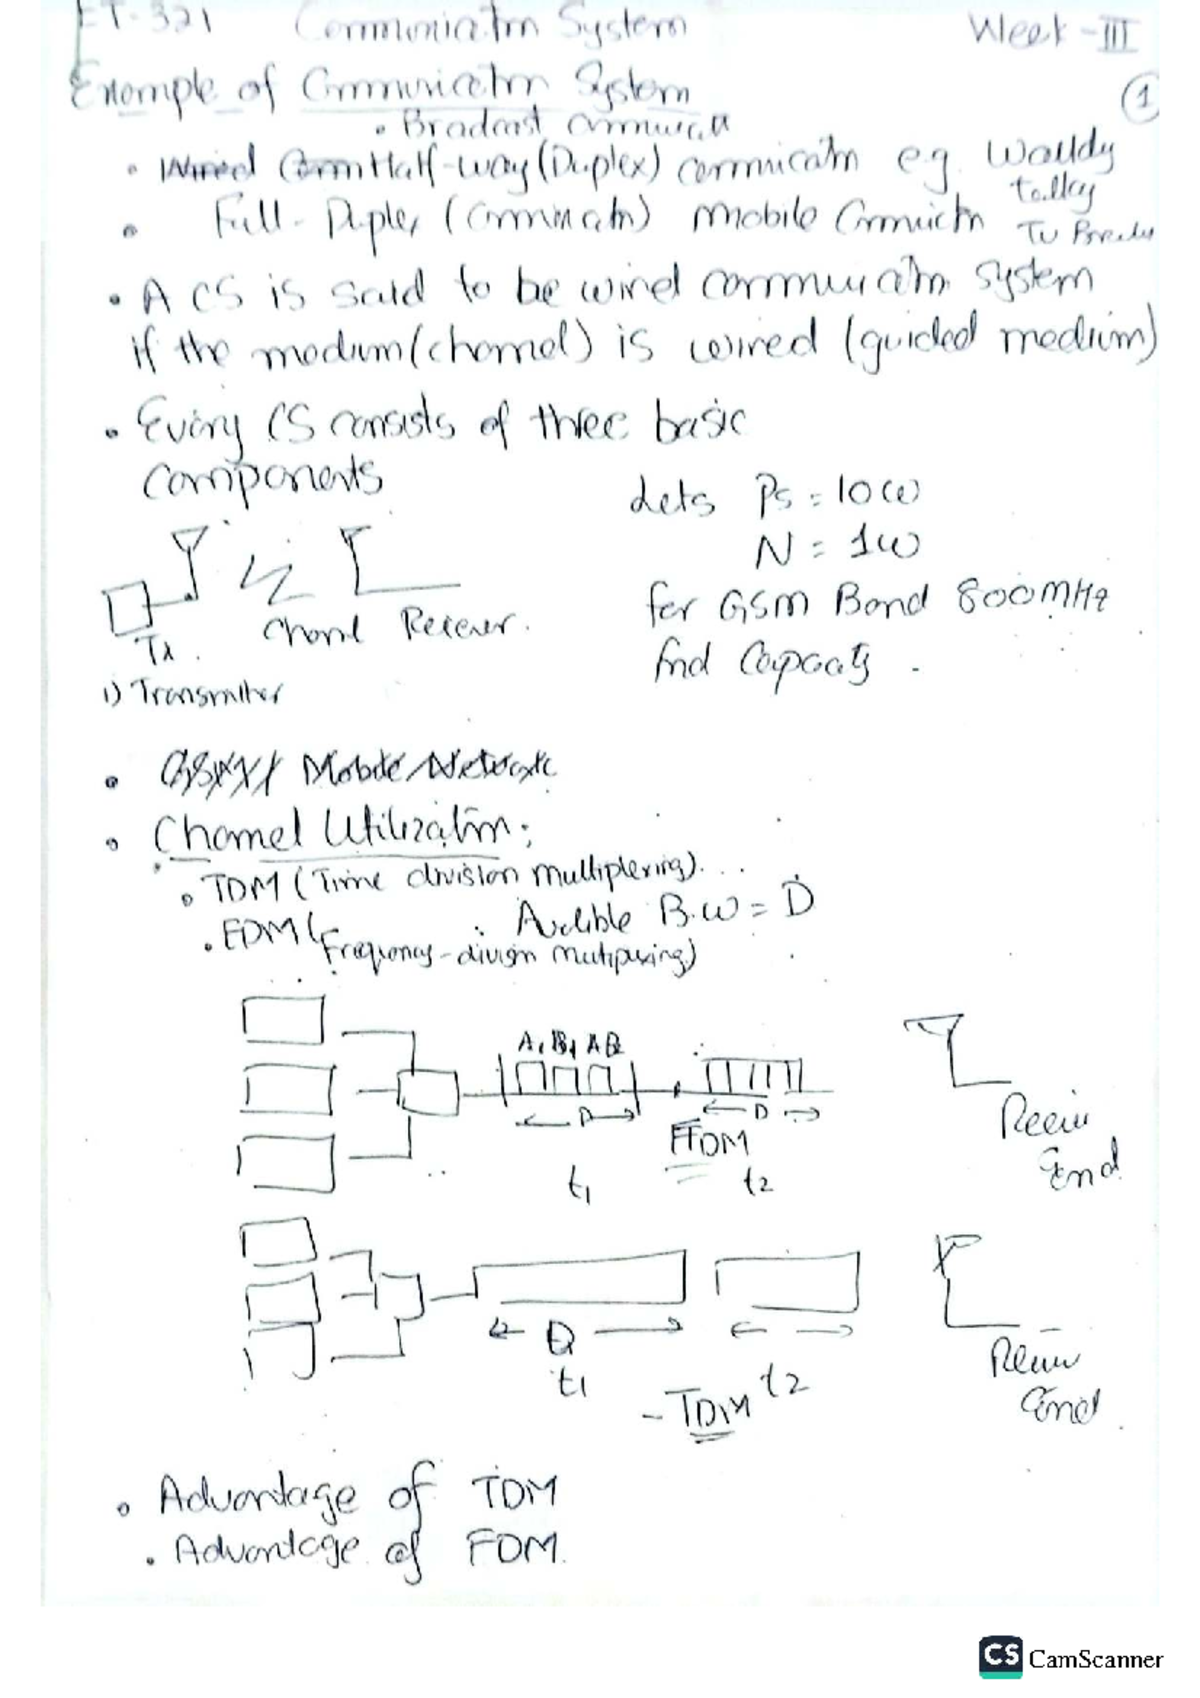 ET-321 Communicatn System Week-III
Exomple of Communicatn System
1
• Broadcast
• Wired Comm Half-way (Duplex) commnicatn e.g. Walldy
talky
• Full-Duplex (Commincatn) Mobile Commuictn TV
• A CS is said to be wired communicatn system
if the medium (channel) is wired (guided medium)
• Every CS consists of three basic
components
Lets Ps = 10W
N = 1W
for GSM Band 800MHz
find Capacity.
Tx. Channel Receiver.
i) Transmitter
• Mobile Network
• Channel Utilization;
• TDM (Time division multiplexing)...
Audible B.W = D
• FDM (Frequency-division multiplexing)
A, B, A B
D D
FDM
t1 t2
Receiv
End
D
t1 t2
- TDM
Receiv
End
• Advantage of TDM
• Advantage of FDM.
CS CamScanner